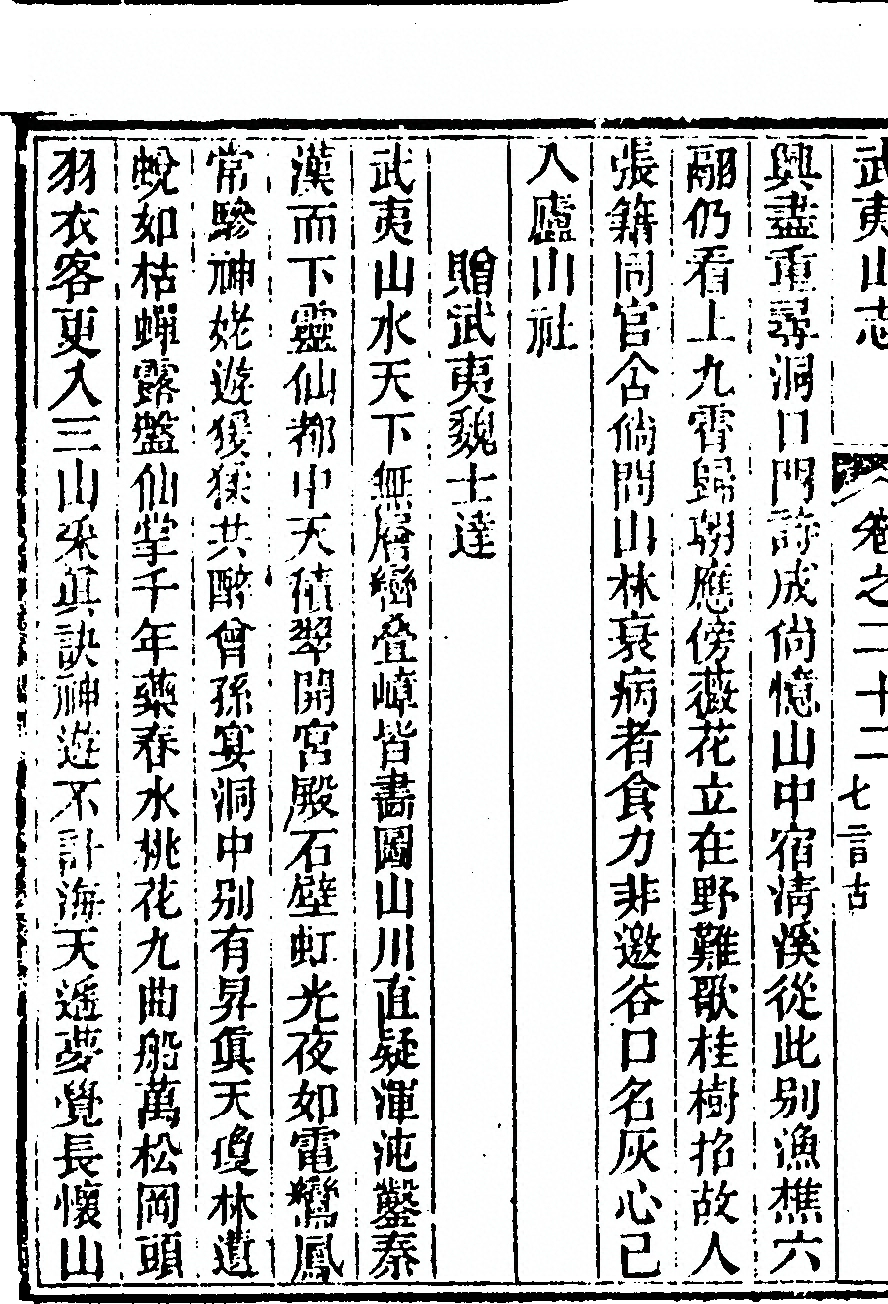 武夷山志 卷之二十二 七言古
興盡重尋洞口門詩成尙憶山中宿淸溪從此别漁樵六
翮仍看上九霄歸朝應傍薇花立在野難歌桂樹招故人
張籍同官舍倘問山林衰病者食力非邀谷口名灰心已
入廬山社
贈武夷魏士達
武夷山水天下無層巒叠嶂皆畵圖山川直疑渾沌鑿秦
漢而下靈仙都中天積翠開宮殿石壁虹光夜如電鸞鳳
常驂神姥遊猨猱共醉曾孫宴洞中别有昇眞天瓊林遺
蛻如枯蟬露盤仙掌千年藥春水桃花九曲船萬松岡頭
羽衣客更入三山采眞訣神遊不計海天遥夢覺長懷山